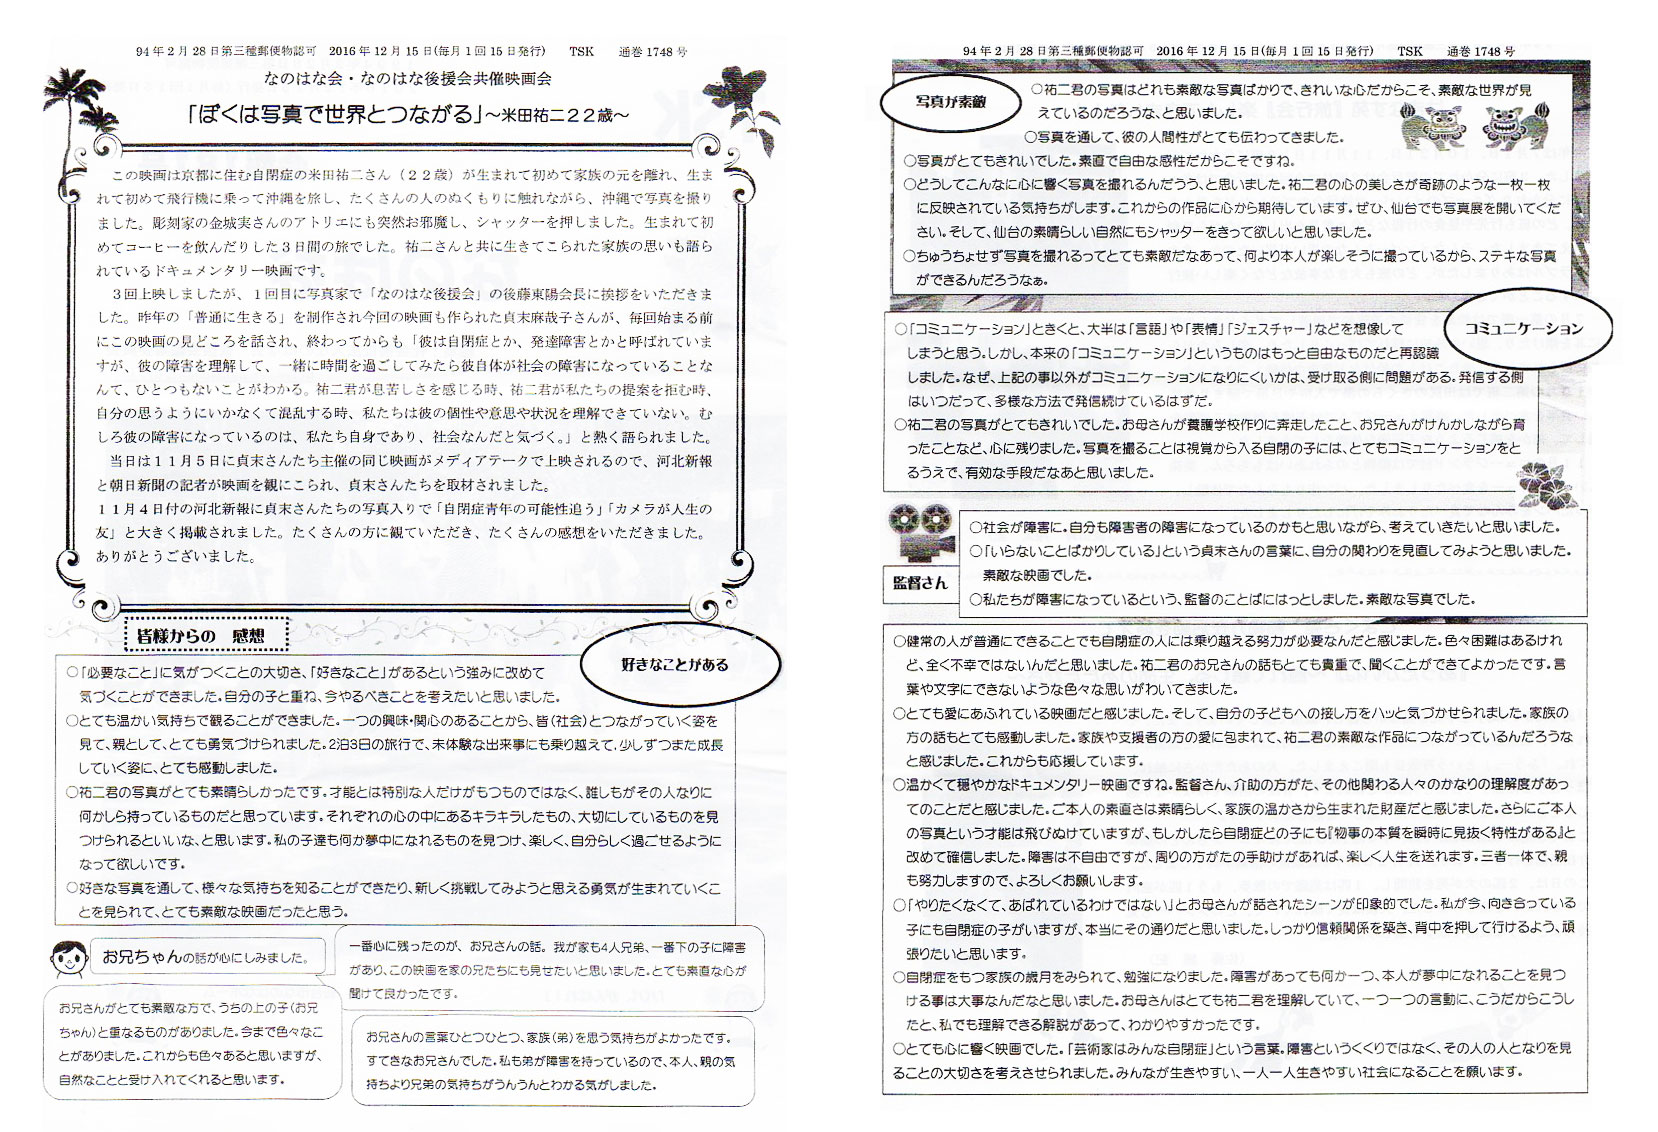 94年2月28日第三種郵便物認可　2016年12月15日(毎月1回15日発行)　TSK　通巻1748号
なのはな会・なのはな後援会共催映画会
「ぼくは写真で世界とつながる」～米田祐二２２歳～
この映画は京都に住む自閉症の米田祐二さん（２２歳）が生まれて初めて家族の元を離れ、生ま
れて初めて飛行機に乗って沖縄を旅し、たくさんの人のぬくもりに触れながら、沖縄で写真を撮り
ました。彫刻家の金城実さんのアトリエにも突然お邪魔し、シャッターを押しました。生まれて初
めてコーヒーを飲んだりした３日間の旅でした。祐二さんと共に生きてこられた家族の思いも語ら
れているドキュメンタリー映画です。
３回上映しましたが、１回目に写真家で「なのはな後援会」の後藤東陽会長に挨拶をいただきま
した。昨年の「普通に生きる」を制作され今回の映画も作られた貞末麻哉子さんが、毎回始まる前
にこの映画の見どころを話され、終わってからも「彼は自閉症とか、発達障害とかと呼ばれていま
すが、彼の障害を理解して、一緒に時間を過ごしてみたら彼自体が社会の障害になっていることな
んて、ひとつもないことがわかる。祐二君が息苦しさを感じる時、祐二君が私たちの提案を拒む時、
自分の思うようにいかなくて混乱する時、私たちは彼の個性や意思や状況を理解できていない。む
しろ彼の障害になっているのは、私たち自身であり、社会なんだと気づく。」と熱く語られました。
当日は１１月５日に貞末さんたち主催の同じ映画がメディアテークで上映されるので、河北新報
と朝日新聞の記者が映画を観にこられ、貞末さんたちを取材されました。
１１月４日付の河北新報に貞末さんたちの写真入りで「自閉症青年の可能性追う」「カメラが人生の
友」と大きく掲載されました。たくさんの方に観ていただき、たくさんの感想をいただきました。
ありがとうございました。
皆様からの　感想
好きなことがある
○「必要なこと」に気がつくことの大切さ、「好きなこと」があるという強みに改めて
気づくことができました。自分の子と重ね、今やるべきことを考えたいと思いました。
○とても温かい気持ちで観ることができました。一つの興味・関心のあることから、皆（社会）とつながっていく姿を
見て、親として、とても勇気づけられました。2泊3日の旅行で、未体験な出来事にも乗り越えて、少しずつまた成長
していく姿に、とても感動しました。
○祐二君の写真がとても素晴らしかったです。才能とは特別な人だけがもつものではなく、誰しもがその人なりに
何かしら持っているものだと思っています。それぞれの心の中にあるキラキラしたもの、大切にしているものを見
つけられるといいな、と思います。私の子達も何か夢中になれるものを見つけ、楽しく、自分らしく過ごせるように
なって欲しいです。
○好きな写真を通して、様々な気持ちを知ることができたり、新しく挑戦してみようと思える勇気が生まれていくこ
とを見られて、とても素敵な映画だったと思う。
お兄ちゃんの話が心にしみました。
一番心に残ったのが、お兄さんの話。我が家も4人兄弟、一番下の子に障害
があり、この映画を家の兄たちにも見せたいと思いました。とても素直な心が
聞けて良かったです。
お兄さんがとても素敵な方で、うちの上の子（お兄
ちゃん）と重なるものがありました。今まで色々なこ
とがありました。これからも色々あると思いますが、
自然なことと受け入れてくれると思います。
お兄さんの言葉ひとつひとつ、家族（弟）を思う気持ちがよかったです。
すてきなお兄さんでした。私も弟が障害を持っているので、本人、親の気
持ちより兄弟の気持ちがうんうんとわかる気がしました。
94年2月28日第三種郵便物認可　2016年12月15日(毎月1回15日発行)　TSK　通巻1748号
写真が素敵
○祐二君の写真はどれも素敵な写真ばかりで、きれいな心だからこそ、素敵な世界が見
えているのだろうな、と思いました。
○写真を通して、彼の人間性がとても伝わってきました。
○写真がとてもきれいでした。素直で自由な感性だからこそですね。
○どうしてこんなに心に響く写真を撮れるんだうう、と思いました。祐二君の心の美しさが奇跡のような一枚一枚
に反映されている気持ちがします。これからの作品に心から期待しています。ぜひ、仙台でも写真展を開いてくだ
さい。そして、仙台の素晴らしい自然にもシャッターをきって欲しいと思いました。
○ちゅうちょせず写真を撮れるってとても素敵だなあって、何より本人が楽しそうに撮っているから、ステキな写真
ができるんだろうなぁ。
コミュニケーション
○「コミュニケーション」ときくと、大半は「言語」や「表情」「ジェスチャー」などを想像して
しまうと思う。しかし、本来の「コミュニケーション」というものはもっと自由なものだと再認識
しました。なぜ、上記の事以外がコミュニケーションになりにくいかは、受け取る側に問題がある。発信する側
はいつだって、多様な方法で発信続けているはずだ。
○祐二君の写真がとてもきれいでした。お母さんが養護学校作りに奔走したこと、お兄さんがけんかしながら育
ったことなど、心に残りました。写真を撮ることは視覚から入る自閉の子には、とてもコミュニケーションをと
るうえで、有効な手段だなあと思いました。
監督さん
○社会が障害に。自分も障害者の障害になっているのかもと思いながら、考えていきたいと思いました。
○「いらないことばかりしている」という貞末さんの言葉に、自分の関わりを見直してみようと思いました。
素敵な映画でした。
○私たちが障害になっているという、監督のことばにはっとしました。素敵な写真でした。
○健常の人が普通にできることでも自閉症の人には乗り越える努力が必要なんだと感じました。色々困難はあるけれ
ど、全く不幸ではないんだと思いました。祐二君のお兄さんの話もとても貴重で、聞くことができてよかったです。言
葉や文字にできないような色々な思いがわいてきました。
○とても愛にあふれている映画だと感じました。そして、自分の子どもへの接し方をハッと気づかせられました。家族の
方の話もとても感動しました。家族や支援者の方の愛に包まれて、祐二君の素敵な作品につながっているんだろうな
と感じました。これからも応援しています。
○温かくて穏やかなドキュメンタリー映画ですね。監督さん、介助の方がた、その他関わる人々のかなりの理解度があっ
てのことだと感じました。ご本人の素直さは素晴らしく、家族の温かさから生まれた財産だと感じました。さらにご本人
の写真という才能は飛びぬけていますが、もしかしたら自閉症どの子にも『物事の本質を瞬時に見抜く特性がある』と
改めて確信しました。障害は不自由ですが、周りの方がたの手助けがあれば、楽しく人生を送れます。三者一体で、親
も努力しますので、よろしくお願いします。
○「やりたくなくて、あばれているわけではない」とお母さんが話されたシーンが印象的でした。私が今、向き合っている
子にも自閉症の子がいますが、本当にその通りだと思いました。しっかり信頼関係を築き、背中を押して行けるよう、頑
張りたいと思います。
○自閉症をもつ家族の歳月をみられて、勉強になりました。障害があっても何か一つ、本人が夢中になれることを見つ
ける事は大事なんだなと思いました。お母さんはとても祐二君を理解していて、一つ一つの言動に、こうだからこうし
たと、私でも理解できる解説があって、わかりやすかったです。
○とても心に響く映画でした。「芸術家はみんな自閉症」という言葉。障害というくくりではなく、その人の人となりを見
ることの大切さを考えさせられました。みんなが生きやすい、一人一人生きやすい社会になることを願います。